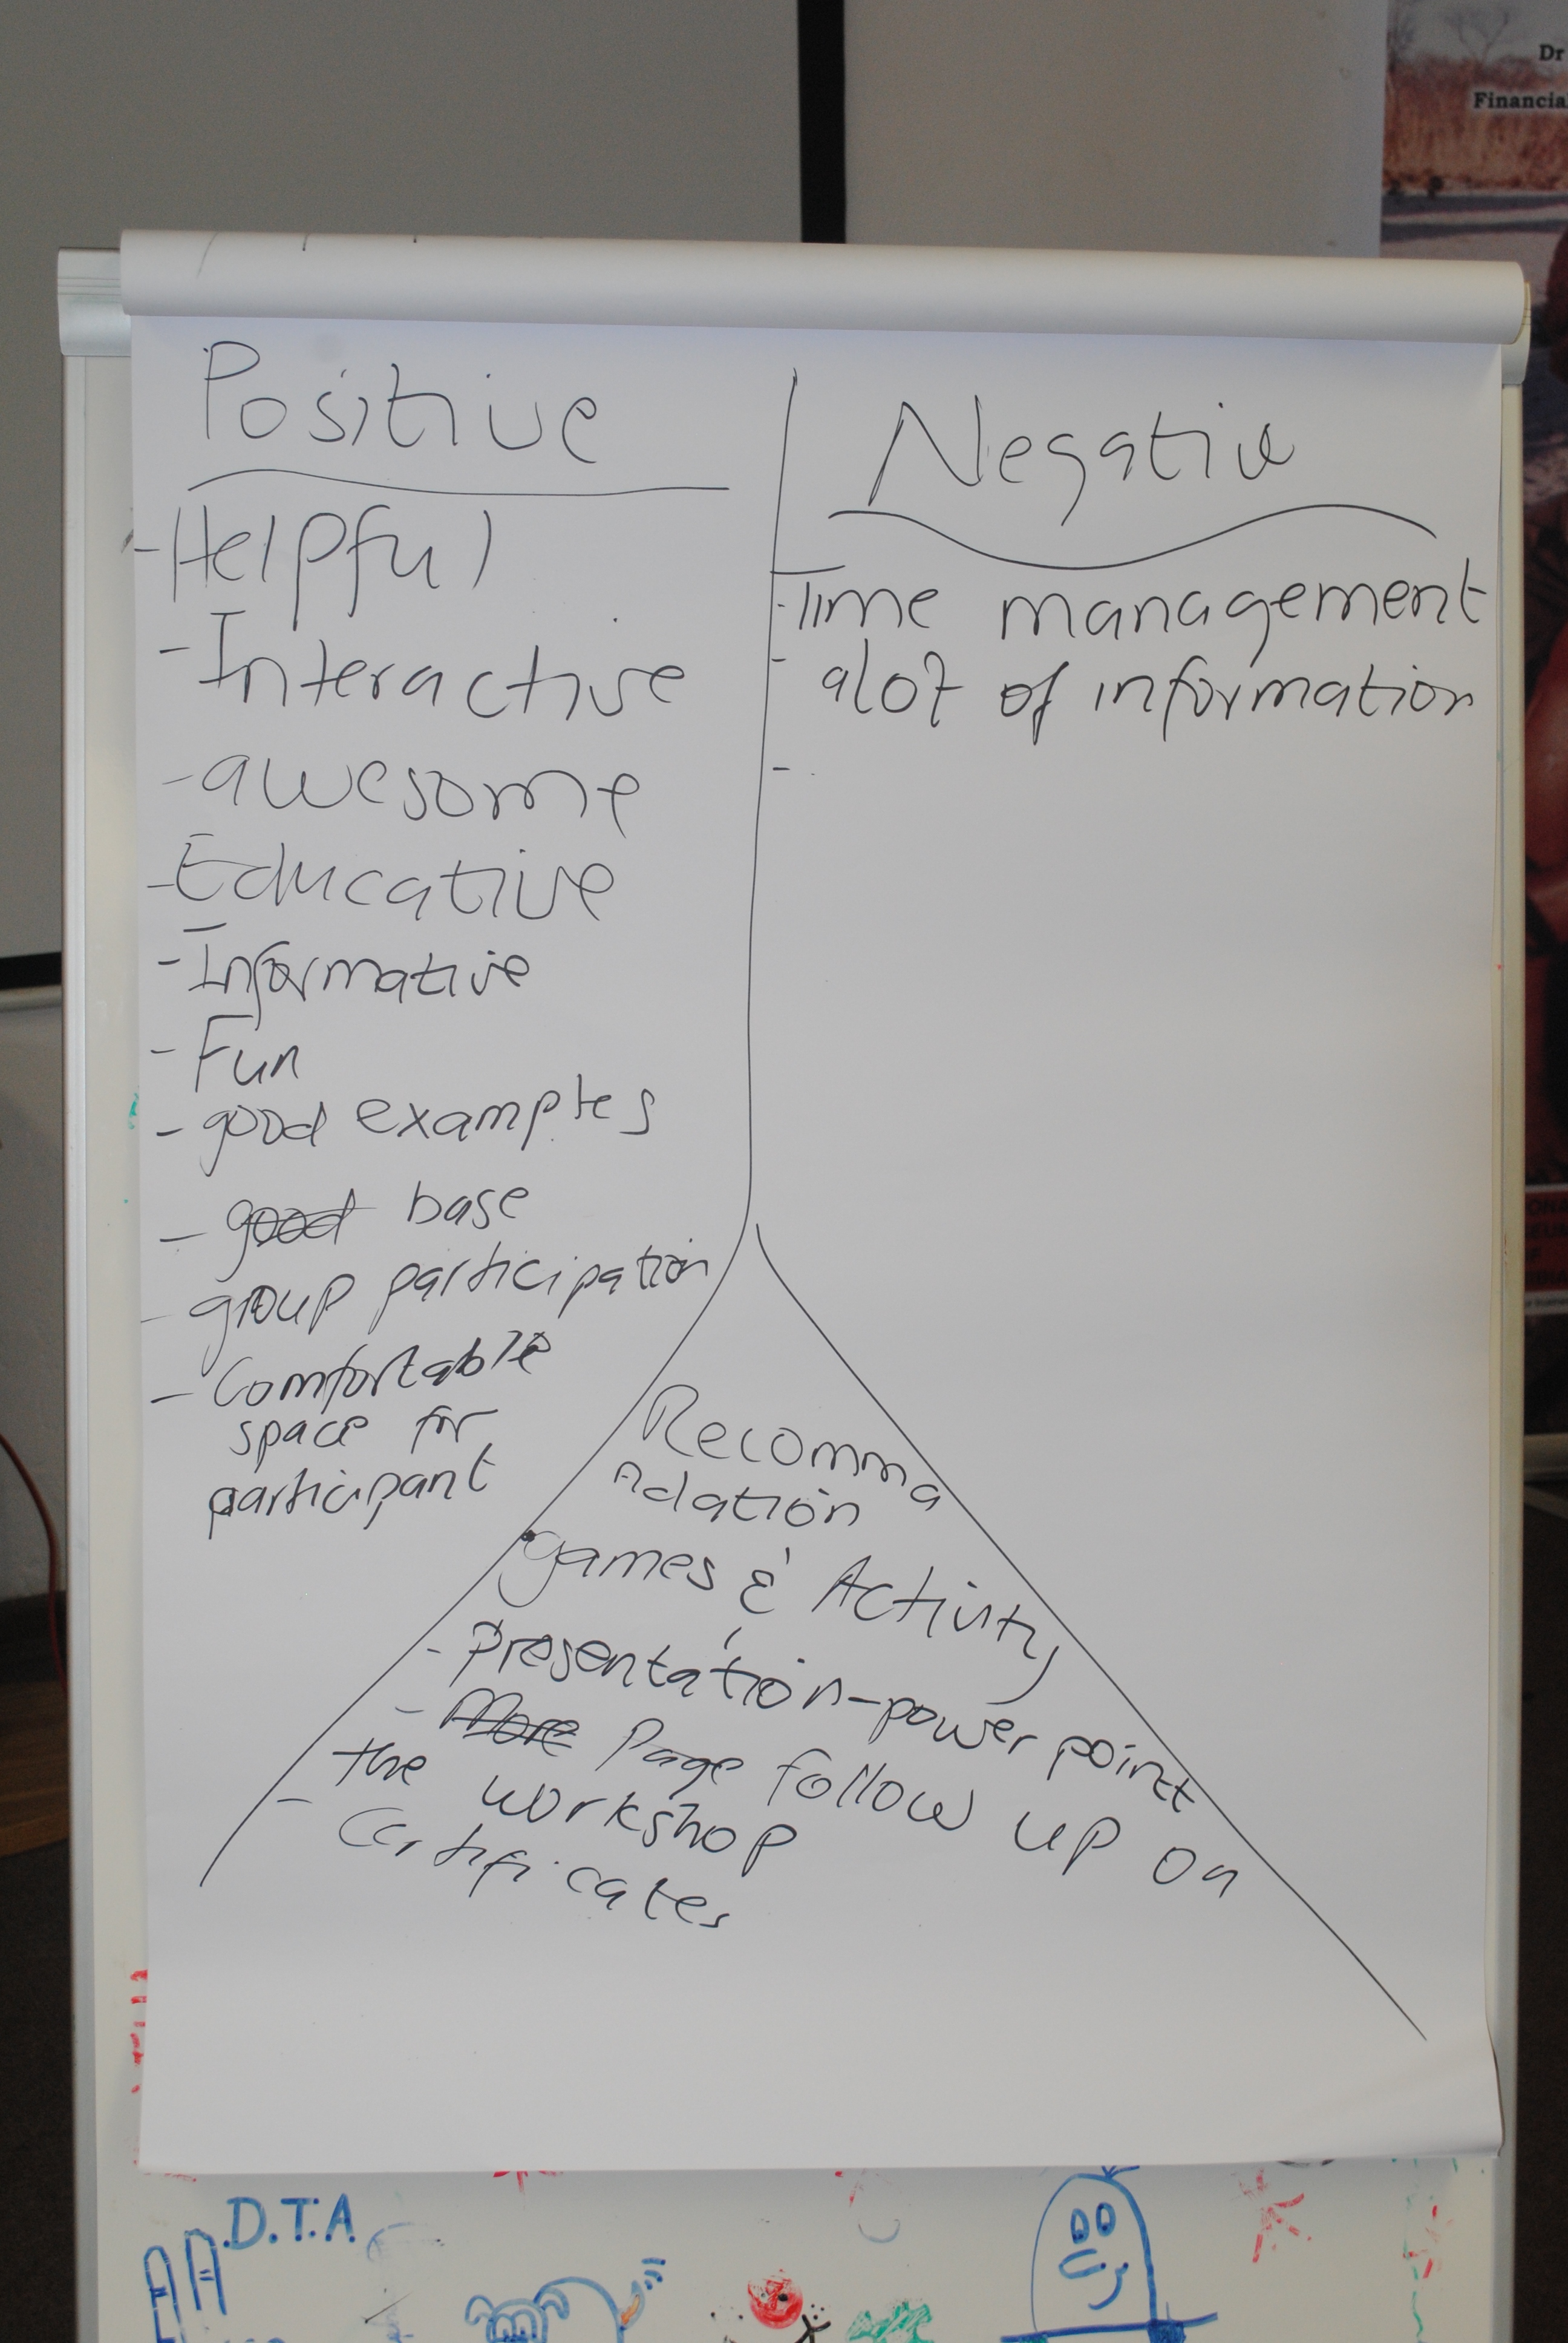 Positive
-Helpful
- Interactive
- awesome
- Educative
- Informative
- Fun
- good examples
- good base
- group participation
- Comfortable
space for
participant
Negative
- Time management
- alot of information
-
Recomma
ndation
games & Activity
- presentation-power point
- More Page follow up on
the workshop
- Certificates
Dr
Financial
D.T.A